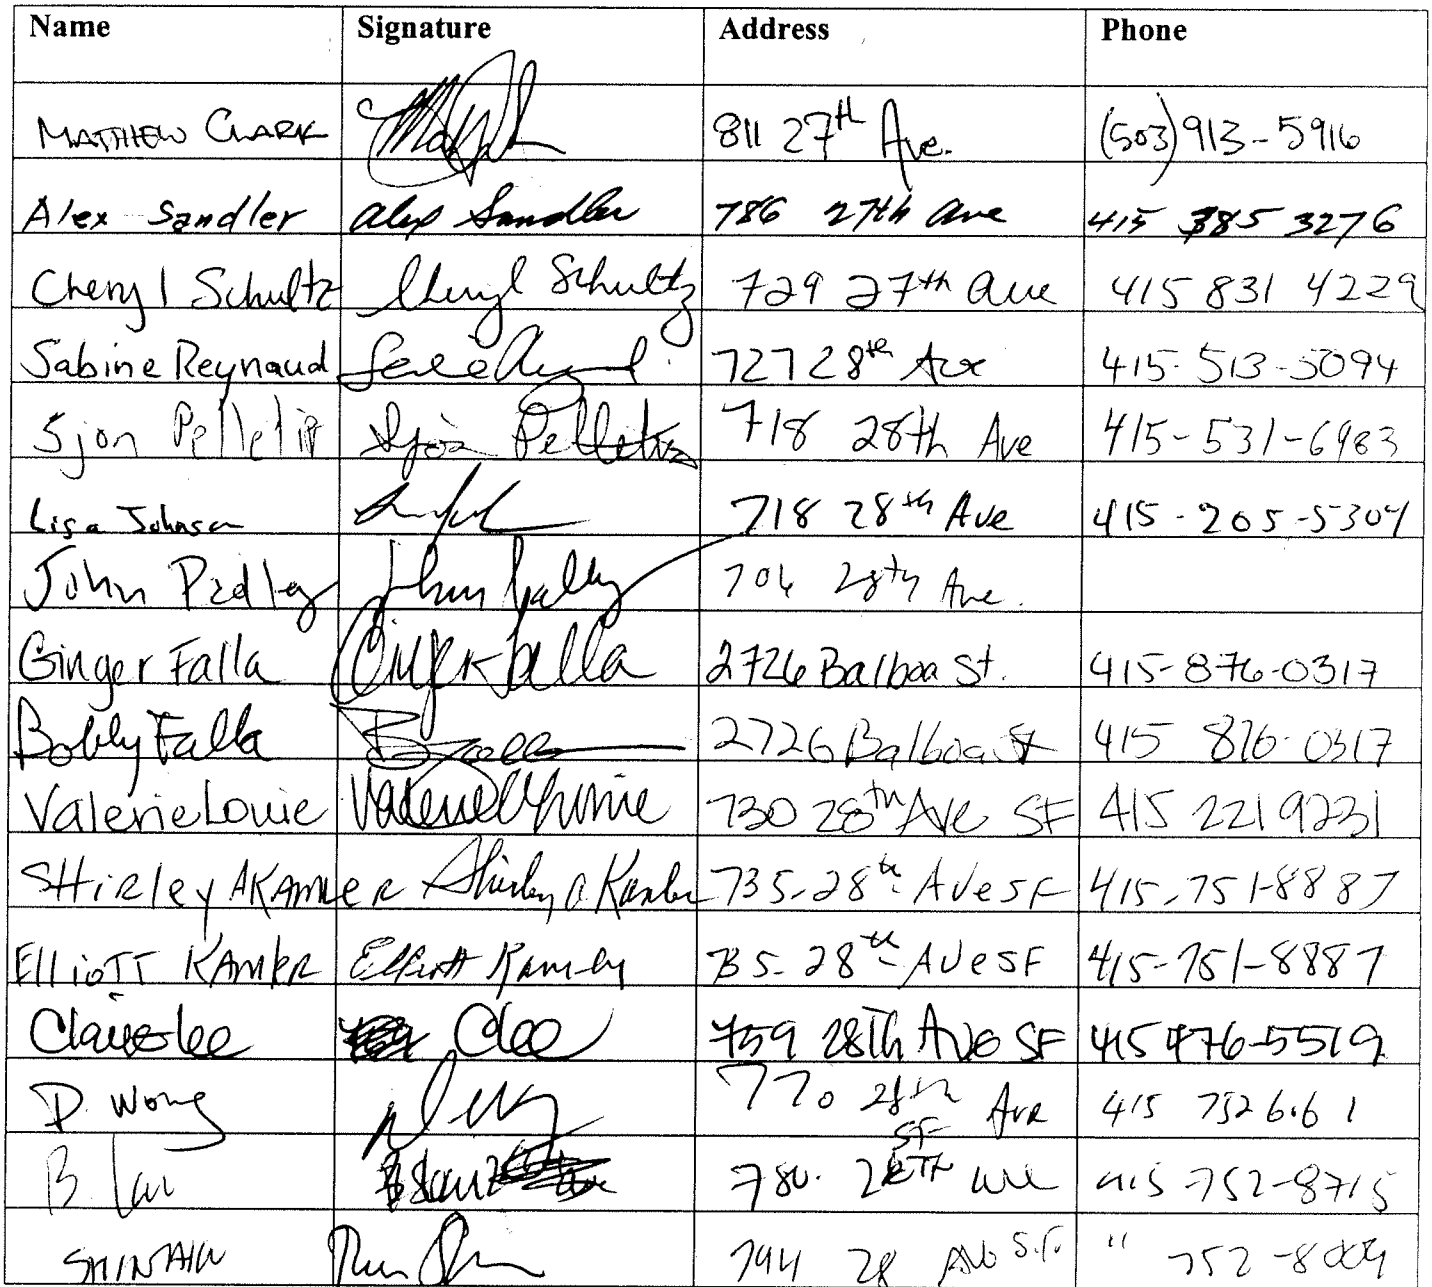 Name Signature Address Phone
MATTHEW CLARK 811 27th Ave. (503) 913-5916
Alex Sandler Alex Sandler 786 27th Ave 415 385 3276
Cheryl Schultz Cheryl Schultz 729 27th Ave 415 831 4229
Sabine Reynaud 727 28th Ave 415-513-5094
Sjon Pelletier Sjon Pelletier 718 28th Ave 415-531-6983
Lisa Johnson 718 28th Ave 415-205-5304
John Padley 704 28th Ave.
Ginger Falla Ginger Falla 2726 Balboa St. 415-876-0317
Bobby Falla 2726 Balboa St 415 876-0317
Valerie Louie Valerie Louie 730 28th Ave SF 415 221 9231
SHirley A KAMLER Shirley A Kamler 735-28th AVe SF 415-751-8887
ElliOTT KAMLER Elliott Kamler 735-28th AVe SF 415-751-8887
Claire Lee CLee 759 28Th Ave SF 415 476-5519
D. Wong 770 28th Ave 415
SF
B. Lau 780. 28TH Ave 415 752-8715
794 28 Ave S.F. " 752-8009